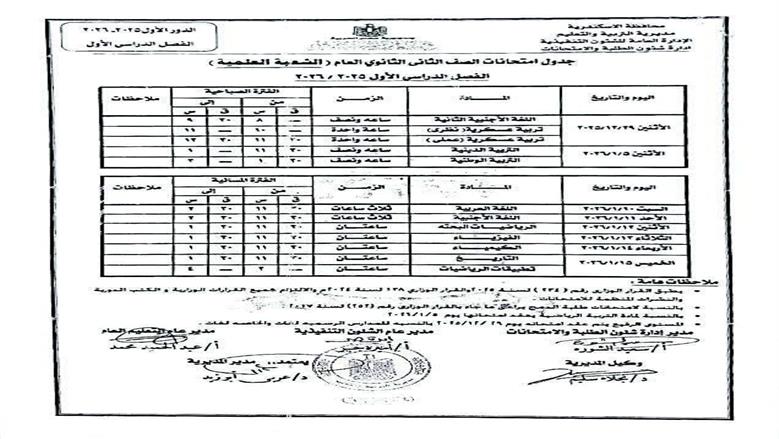 محافظة الاسكندرية
مديرية التربية والتعليم
الإدارة العامة للشئون التنفيذية
إدارة شئون الطلبة والامتحانات
الدور الأول ٢٠٢٥-٢٠٢٦
الفصل الدراسى الأول
جدول امتحانات الصف الثانى الثانوي العام ( الشعبة العلمية )
الفصل الدراسى الأول ٢٠٢٥ / ٢٠٢٦
اليوم والتاريخ المـــادة الزمـن الفترة الصباحية ملاحظات
من إلى
ق س ق س
الأثنين ٢٠٢٥/١٢/٢٩ اللغة الأجنبية الثانية ساعه ونصف — ٨ ٣٠ ٩
تربية عسكرية (نظرى) ساعة واحدة — ١٠ — ١١
تربية عسكرية (عملى) ساعة واحدة ٣٠ ١١ ٣٠ ١٢
الأثنين ٢٠٢٦/١/٥ التربية الدينية ساعه ونصف
التربية الوطنية ساعه ونصف
اليوم والتاريخ المـــادة الزمـن الفترة المسائية ملاحظات
من إلى
ق س ق س
السبت ٢٠٢٦/١/١٠ اللغة العربية ثلاث ساعات ٣٠ ١١ ٣٠ ٢
الأحد ٢٠٢٦/١/١١ اللغة الأجنبية ثلاث ساعات ٣٠ ١١ ٣٠ ٢
الأثنين ٢٠٢٦/١/١٢ الرياضيات البحته ساعتان ٣٠ ١١ ٣٠ ١
الثلاثاء ٢٠٢٦/١/١٣ الفيزياء ساعتان ٣٠ ١١ ٣٠ ١
الأربعاء ٢٠٢٦/١/١٤ الكيمياء ساعتان ٣٠ ١١ ٣٠ ١
الخميس ٢٠٢٦/١/١٥ التاريخ ساعتان ٣٠ ١١ ٣٠ ١
تطبيقات الرياضيات ساعتان — ٢ — ٤
ملاحظات عامة :
يطبق القرار الوزارى رقم ( ٢٣٤ ) لسنة ٢٠٢٥ والقرار الوزاري ١٣٨ لسنة ٢٠٢٤ والالتزام بجميع القرارات الوزارية و الكتب الدورية
والنشرات المنظمة للامتحانات
بالنسبة لامتحانات طلبة الدمج يراعى ما جاء بالقرار الوزارى رقم (٢٥٢) لسنة ٢٠١٧
بالنسبة لمادة التربية الرياضية يعقد امتحانها يوم ٢٠٢٦/١/٥
المستوى الرفيع يتم عقد امتحاناته يوم ٢٠٢٥/١٢/٢٩ بالنسبة للمدارس الرسمية لغات والخاصة لغات
مدير إدارة شئون الطلبة والامتحانات
مدير عام الشئون التنفيذية
مدير عام التعليم العام
أ/ سيد الشوره
أ/ عبد الحميد محمد
وكيل المديرية
يعتمد،، مدير المديرية
د/ نجلاء سليم
د/ عربى أبو زيد